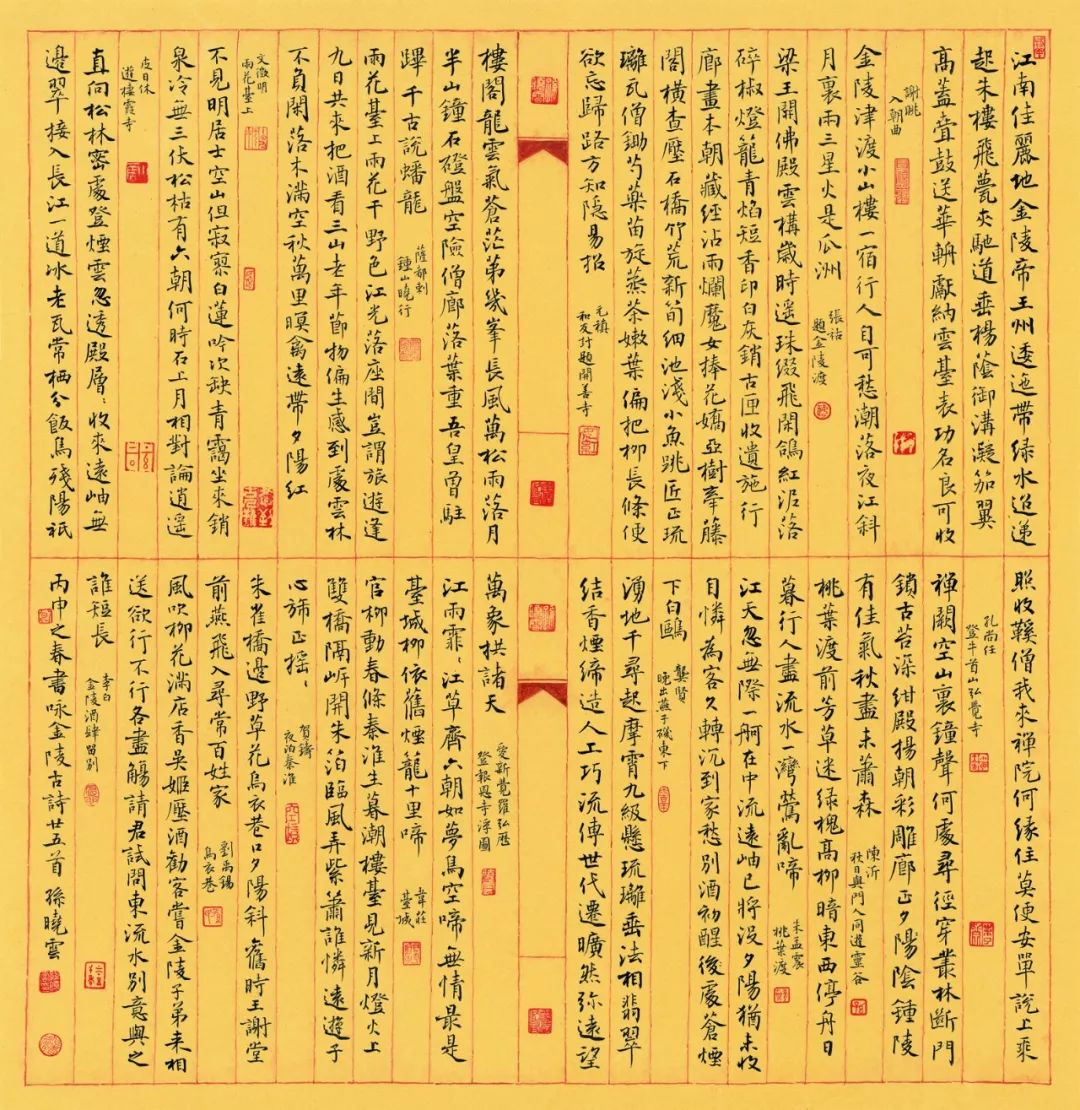 江南佳麗地金陵帝王州逶迤帶綠水迢遞
起朱樓飛甍夾馳道垂楊蔭御溝凝笳翼
高蓋疊鼓送華輈獻納雲臺表功名良可收
謝朓
入朝曲
金陵津渡小山樓一宿行人自可愁潮落夜江斜
月裏兩三星火是瓜洲
張祜
題金陵渡
梁王開佛殿雲構歲時遥珠綴飛閑鴿紅泥落
碎椒燈籠青焰短香印白灰銷古匣收遺施行
廊畫本朝藏經沾雨爛魔女捧花嬌亞樹牽藤
閣橫查壓石橋竹荒新筍細池淺小魚跳匠正琉
璃瓦僧鋤芍藥苗旋蒸茶嫩葉偏把柳長條便
欲忘歸路方知隱易招
元稹
和友封題開善寺
樓閣龍雲氣蒼茫第幾峯長風萬松雨落月
半山鐘石磴盤空險僧廊落葉重吾皇曾駐
蹕千古説蟠龍
薩都剌
鍾山曉行
雨花臺上雨花干野色江光落座間豈謂旅遊逢
九日共來把酒看三山老年節物偏生感到處雲林
不負閑落木滿空秋萬里暝禽遠帶夕陽紅
文徵明
雨花臺上
不見明居士空山但寂寥白蓮吟次缺青靄坐來銷
泉冷無三伏松枯有六朝何時石上月相對論逍遥
皮日休
遊棲霞寺
直向松林密處登煙雲忽透殿層：收來遠岫無
邊翠接入長江一道冰老瓦常栖分飯烏殘陽祇
照收鞵僧我來禪院何緣住莫便安單說上乘
孔尚任
登牛首山弘覺寺
禅闕空山裏鐘聲何處尋徑穿叢林斷門
鎖古苔深紺殿揚朝彩雕廊正夕陽陰鍾陵
有佳氣秋盡未蕭森
陳沂
秋日與門人同遊靈谷
桃葉渡前芳草迷绿槐高柳暗東西亭舟日
暮行人盡流水一灣鶯亂啼
朱孟震
桃葉渡
江天忽無際一舸在中流遠岫已將没夕陽猶未收
自憐為客久轉沉到家愁別酒初醒後處蒼煙
下白鷗
龔賢
晚出燕子磯東下
湧地千尋起摩霄九級懸琉璃垂法相翡翠
結香煙締造人工巧流傳世代遷曠然弥遠望
萬象拱諸天
愛新覺羅弘曆
登報恩寺浮圖
江雨霏：江草齊六朝如夢鳥空啼無情最是
臺城柳依舊煙籠十里啼
韋莊
臺城
官柳動春條秦淮生暮潮樓臺見新月燈火上
雙橋隔岸開朱箔臨風弄紫簫誰憐遠遊子
心旆正搖
賀鑄
夜泊秦淮
朱雀橋邊野草花烏衣巷口夕陽斜舊時王謝堂
前燕飛入尋常百姓家
劉禹錫
烏衣巷
風吹柳花滿店香吳姬壓酒勸客嘗金陵子弟来相
送欲行不行各盡觴請君試問東流水別意與之
誰短長
李白
金陵酒肆留別
丙申之春書咏金陵古詩廿五首 孫曉雲